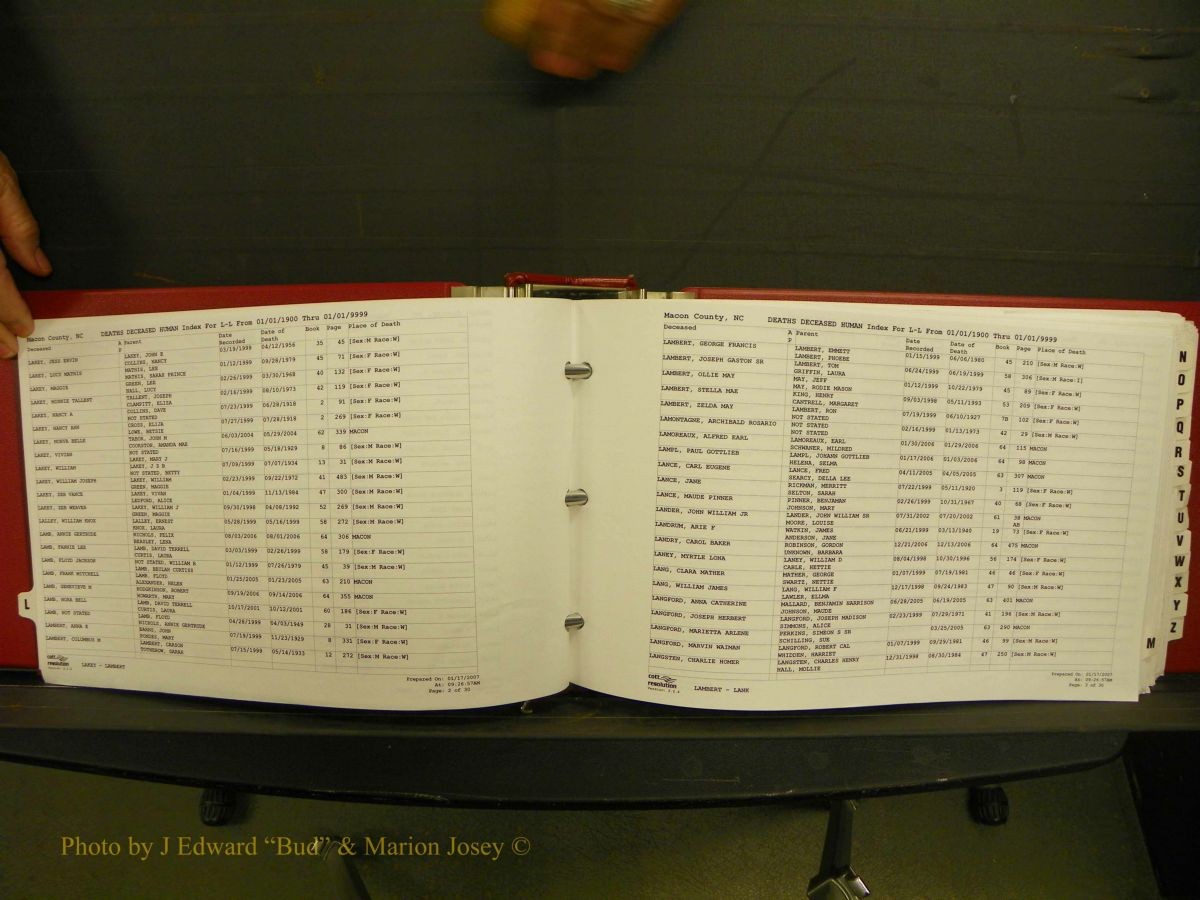 Macon County, NC DEATHS DECEASED HUMAN Index For L-L From 01/01/1900 Thru 01/01/9999
Deceased A P Parent Date Recorded Date of Death Book Page Place of Death
LAKEY, JESS ERVIN LAKEY, JOHN E 03/19/1999 04/12/1956 35 45 [Sex:M Race:W]
COLLINS, NANCY
LAKEY, LUCY MATHIS MATHIS, LEE 01/12/1999 09/28/1979 45 71 [Sex:F Race:W]
MATHIS, SARAH PRINCE
LAKEY, MAGGIE GREEN, LEE 02/26/1999 03/30/1968 40 132 [Sex:F Race:W]
HALL, LUCY
LAKEY, MINNIE TALLENT TALLENT, JOSEPH 02/16/1999 08/10/1973 42 119 [Sex:F Race:W]
CLAMPITT, ELIZA
LAKEY, NANCY A COLLINS, DAVE 07/23/1999 06/28/1918 2 91 [Sex:F Race:W]
NOT STATED
LAKEY, NANCY ANN CROSS, ELIZA 07/27/1999 07/28/1918 2 269 [Sex:F Race:W]
LOWE, BETSIE
LAKEY, NORVA BELLE TABOR, JOHN M 06/03/2004 05/29/2004 62 339 MACON
AMANDA MAE
LAKEY, VIVIAN NOT STATED 07/16/1999 05/18/1929 8 86 [Sex:M Race:W]
LAKEY, MARY J
LAKEY, WILLIAM LAKEY, J S B 07/09/1999 07/07/1934 13 31 [Sex:M Race:W]
NOT STATED, BETTY
LAKEY, WILLIAM JOSEPH LAKEY, WILLIAM 02/23/1999 09/22/1972 41 483 [Sex:M Race:W]
GREEN, MAGGIE
LAKEY, ZEB VANCE LAKEY, VIVAN 01/04/1999 11/13/1984 47 300 [Sex:M Race:W]
LEDFORD, ALICE
LAKEY, ZEB WEAVER LAKEY, WILLIAM J 09/30/1998 04/08/1992 52 269 [Sex:M Race:W]
GREEN, MAGGIE
LALLEY, WILLIAM KNOX LALLEY, ERNEST 05/28/1999 05/16/1999 58 272 [Sex:M Race:W]
KNOX, LAURA
LAMB, ANNIE GERTRUDE NICHOLS, FELIX 08/03/2006 08/01/2006 64 306 MACON
BEASLEY, LENA
LAMB, FANNIE LEE LAMB, DAVID TERRELL 03/03/1999 02/26/1999 58 179 [Sex:F Race:W]
CURTIS, LAURA
LAMB, FLOYD JACKSON NOT STATED, WILLIAM R 01/12/1999 07/26/1979 45 39 [Sex:M Race:W]
LAMB, BEULAH CURTISS
LAMB, FRANK MITCHELL LAMB, FLOYD 01/25/2005 01/23/2005 63 210 MACON
ALEXANDER, HELEN
LAMB, GENEVIEVE M HODGKINSON, ROBERT 09/19/2006 09/14/2006 64 355 MACON
HOWARTH, MARY
LAMB, NORA BELL LAMB, DAVID TERRELL 10/17/2001 10/12/2001 60 186 [Sex:F Race:W]
CURTIS, LAURA
LAMB, NOT STATED LAMB, FLOYD 04/26/1999 04/03/1949 28 31 [Sex:M Race:W]
NICHOLS, ANNIE GERTRUDE
LAMBERT, ANNA E JOHN 07/19/1999 11/23/1929 8 331 [Sex:F Race:W]
MARY
LAMBERT, COLUMBUS M LAMBERT, CARSON 07/15/1999 05/14/1933 12 272 [Sex:M Race:W]
TOTHEROW, SARAH
cott resolution
LAKEY - LAMBERT
Prepared On: 01/17/2007
At: 09:26:57AM
Page: 2 of 30
L
Macon County, NC DEATHS DECEASED HUMAN Index For L-L From 01/01/1900 Thru 01/01/9999
Deceased A P Parent Date Recorded Date of Death Book Page Place of Death
LAMBERT, GEORGE FRANCIS LAMBERT, EMMETT 01/15/1999 06/06/1980 45 210 [Sex:M Race:W]
LAMBERT, PHOEBE
LAMBERT, JOSEPH GASTON SR LAMBERT, TOM 06/24/1999 06/19/1999 58 306 [Sex:M Race:I]
GRIFFIN, LAURA
LAMBERT, OLLIE MAY MAY, JEFF 01/12/1999 10/22/1979 45 89 [Sex:F Race:W]
MAY, RODIE MASON
LAMBERT, STELLA MAE KING, HENRY 09/03/1998 05/11/1993 53 209 [Sex:F Race:W]
CANTRELL, MARGARET
LAMBERT, ZELDA MAY LAMBERT, RON 07/19/1999 06/10/1927 7B 102 [Sex:F Race:W]
NOT STATED
LAMONTAGNE, ARCHIBALD ROSARIO NOT STATED 02/16/1999 01/13/1973 42 29 [Sex:M Race:W]
NOT STATED
LAMOREAUX, ALFRED EARL LAMOREAUX, EARL 01/30/2006 01/29/2006 64 115 MACON
SCHWANER, MILDRED
LAMPL, PAUL GOTTLIEB LAMPL, JOHANN GOTTLIEB 01/17/2006 01/03/2006 64 98 MACON
HELENA, SELMA
LANCE, CARL EUGENE LANCE, FRED 04/11/2005 04/05/2005 63 307 MACON
SEARCY, DELLA LEE
LANCE, JANE RICKMAN, MERRITT 07/22/1999 05/11/1920 3 119 [Sex:F Race:W]
SELTON, SARAH
LANCE, MAUDE PINNER PINNER, BENJAMIN 02/26/1999 10/31/1967 40 68 [Sex:F Race:W]
JOHNSON, MARY
LANDER, JOHN WILLIAM JR LANDER, JOHN WILLIAM SR 07/31/2002 07/20/2002 61 38 MACON
AB
MOORE, LOUISE
LANDRUM, ARIE F WATKIN, JAMES 06/21/1999 03/13/1940 19 73 [Sex:F Race:W]
ANDERSON, JANE
LANDRY, CAROL BAKER ROBINSON, GORDON 12/21/2006 12/13/2006 64 475 MACON
UNKNOWN, BARBARA
LANEY, MYRTLE LONA LANEY, WILLIAM D 08/04/1998 10/30/1996 56 174 [Sex:F Race:W]
CABLE, HETTIE
LANG, CLARA MATHER MATHER, GEORGE 01/07/1999 07/19/1981 46 46 [Sex:F Race:W]
SWARTZ, NETTIE
LANG, WILLIAM JAMES LANG, WILLIAM F 12/17/1998 09/24/1983 47 90 [Sex:M Race:W]
LAWLER, ELLMA
LANGFORD, ANNA CATHERINE MALLARD, BENJAMIN HARRISON 06/28/2005 06/19/2005 63 401 MACON
JOHNSON, MAUDE
LANGFORD, JOSEPH HERBERT LANGFORD, JOSEPH MADISON 02/23/1999 07/29/1971 41 196 [Sex:M Race:W]
SIMMONS, ALICE
LANGFORD, MARIETTA ARLENE PERKINS, SIMEON S SR 03/25/2005 63 290 MACON
SCHILLING, SUE
LANGFORD, MARVIN WAIMAN LANGFORD, ROBERT CAL 01/07/1999 09/29/1981 46 99 [Sex:M Race:W]
WHIDDEN, HARRIET
LANGSTEN, CHARLIE HOMER LANGSTEN, CHARLES HENRY 12/31/1998 08/30/1984 47 250 [Sex:M Race:W]
HALL, MOLLIE
cott resolution
LAMBERT - LANK
Prepared On: 01/17/2007
At: 09:26:57AM
Page: 3 of 30
N
O
P
Q
R
S
T
U
V
W
X
Y
Z
M
Photo by J Edward “Bud” & Marion Josey ©